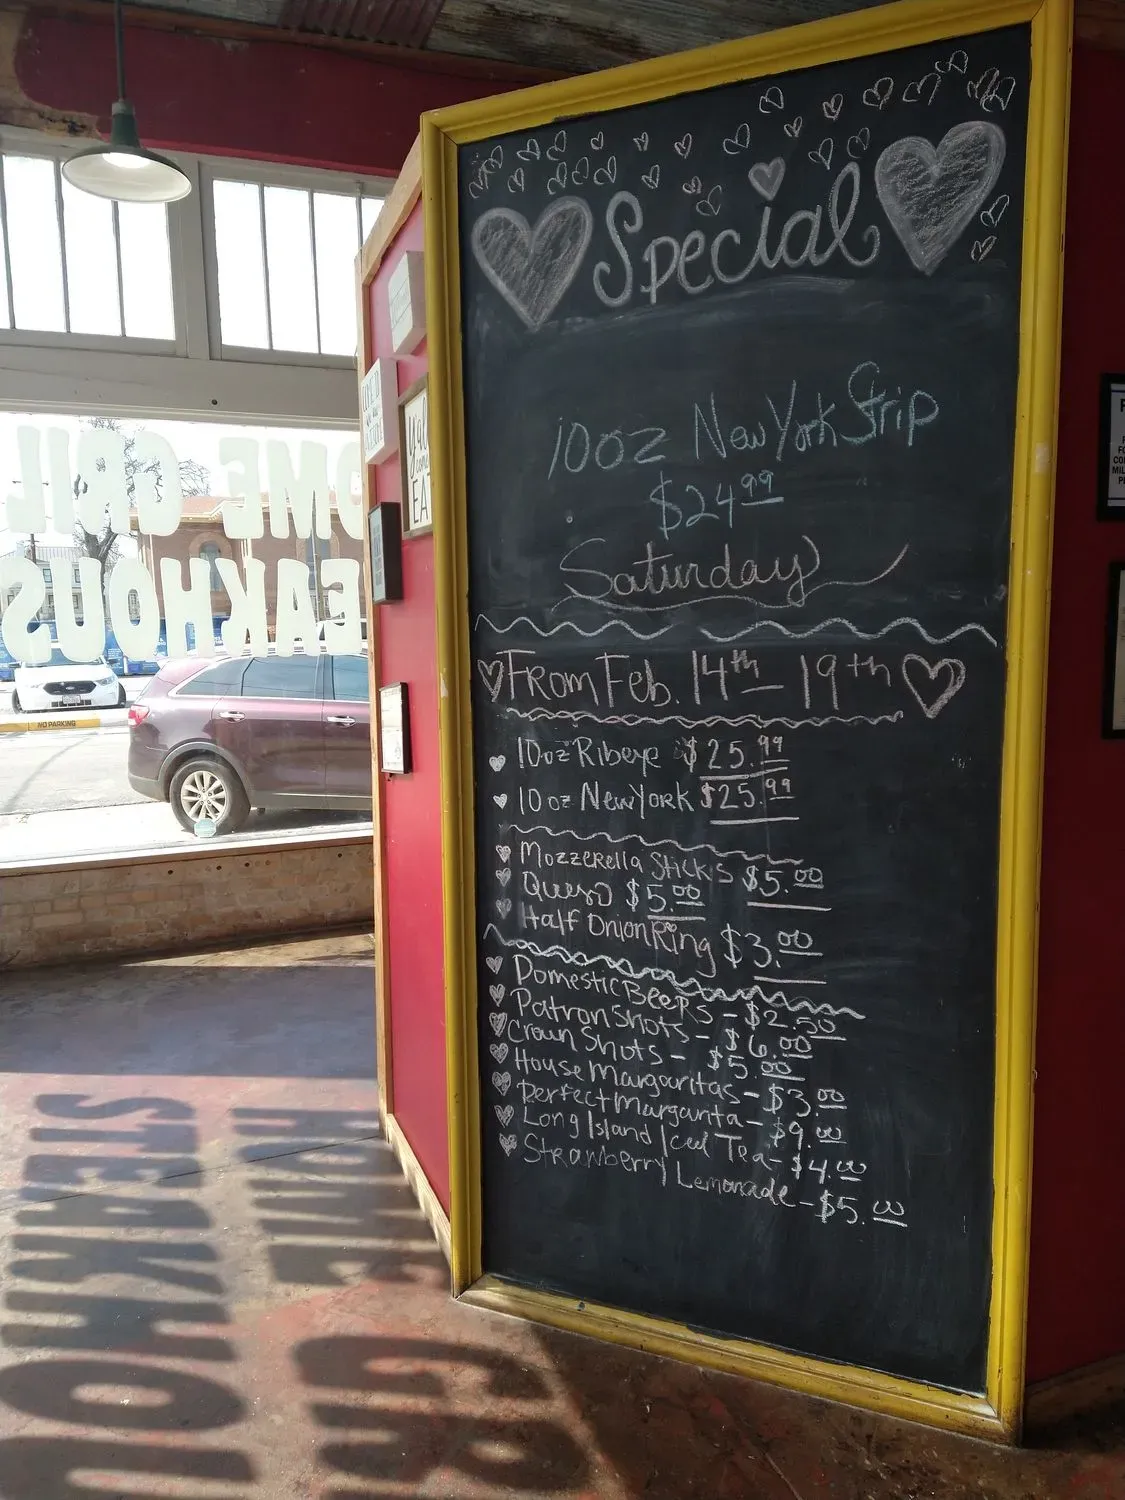 Special
10oz New York Strip
$24.99
Saturday
From Feb. 14th - 19th
10oz Ribeye $25.99
10oz New York $25.99
Mozzerella Sticks $5.00
Queso $5.00
Half Onion Ring $3.00
Domestic Beers - $2.50
Patron Shots - $6.00
Crown Shots - $5.00
House Margaritas - $3.00
Perfect Margarita - $9.00
Long Island Iced Tea - $4.00
Strawberry Lemonade - $5.00
OME GRIL
EAKHOUS
NO PARKING
EAT
STEAKHOU